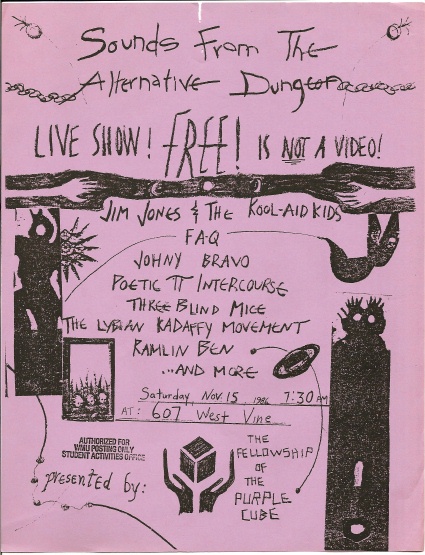 Sounds From The
Alternative Dungeon
LIVE SHOW! FREE! IS NOT A VIDEO!
JIM JONES & THE KOOL-AID KIDS
FAQ
JOHNY BRAVO
POETIC π INTERCOURSE
THREE BLIND MICE
THE LYBIAN KADAFFY MOVEMENT
RAMLIN BEN
...AND MORE
Saturday, Nov. 15, 1986 7:30 PM
AT: 607 West Vine
AUTHORIZED FOR
WMU POSTING ONLY
STUDENT ACTIVITIES OFFICE
presented by:
THE
FELLOWSHIP
OF
THE
PURPLE
CUBE